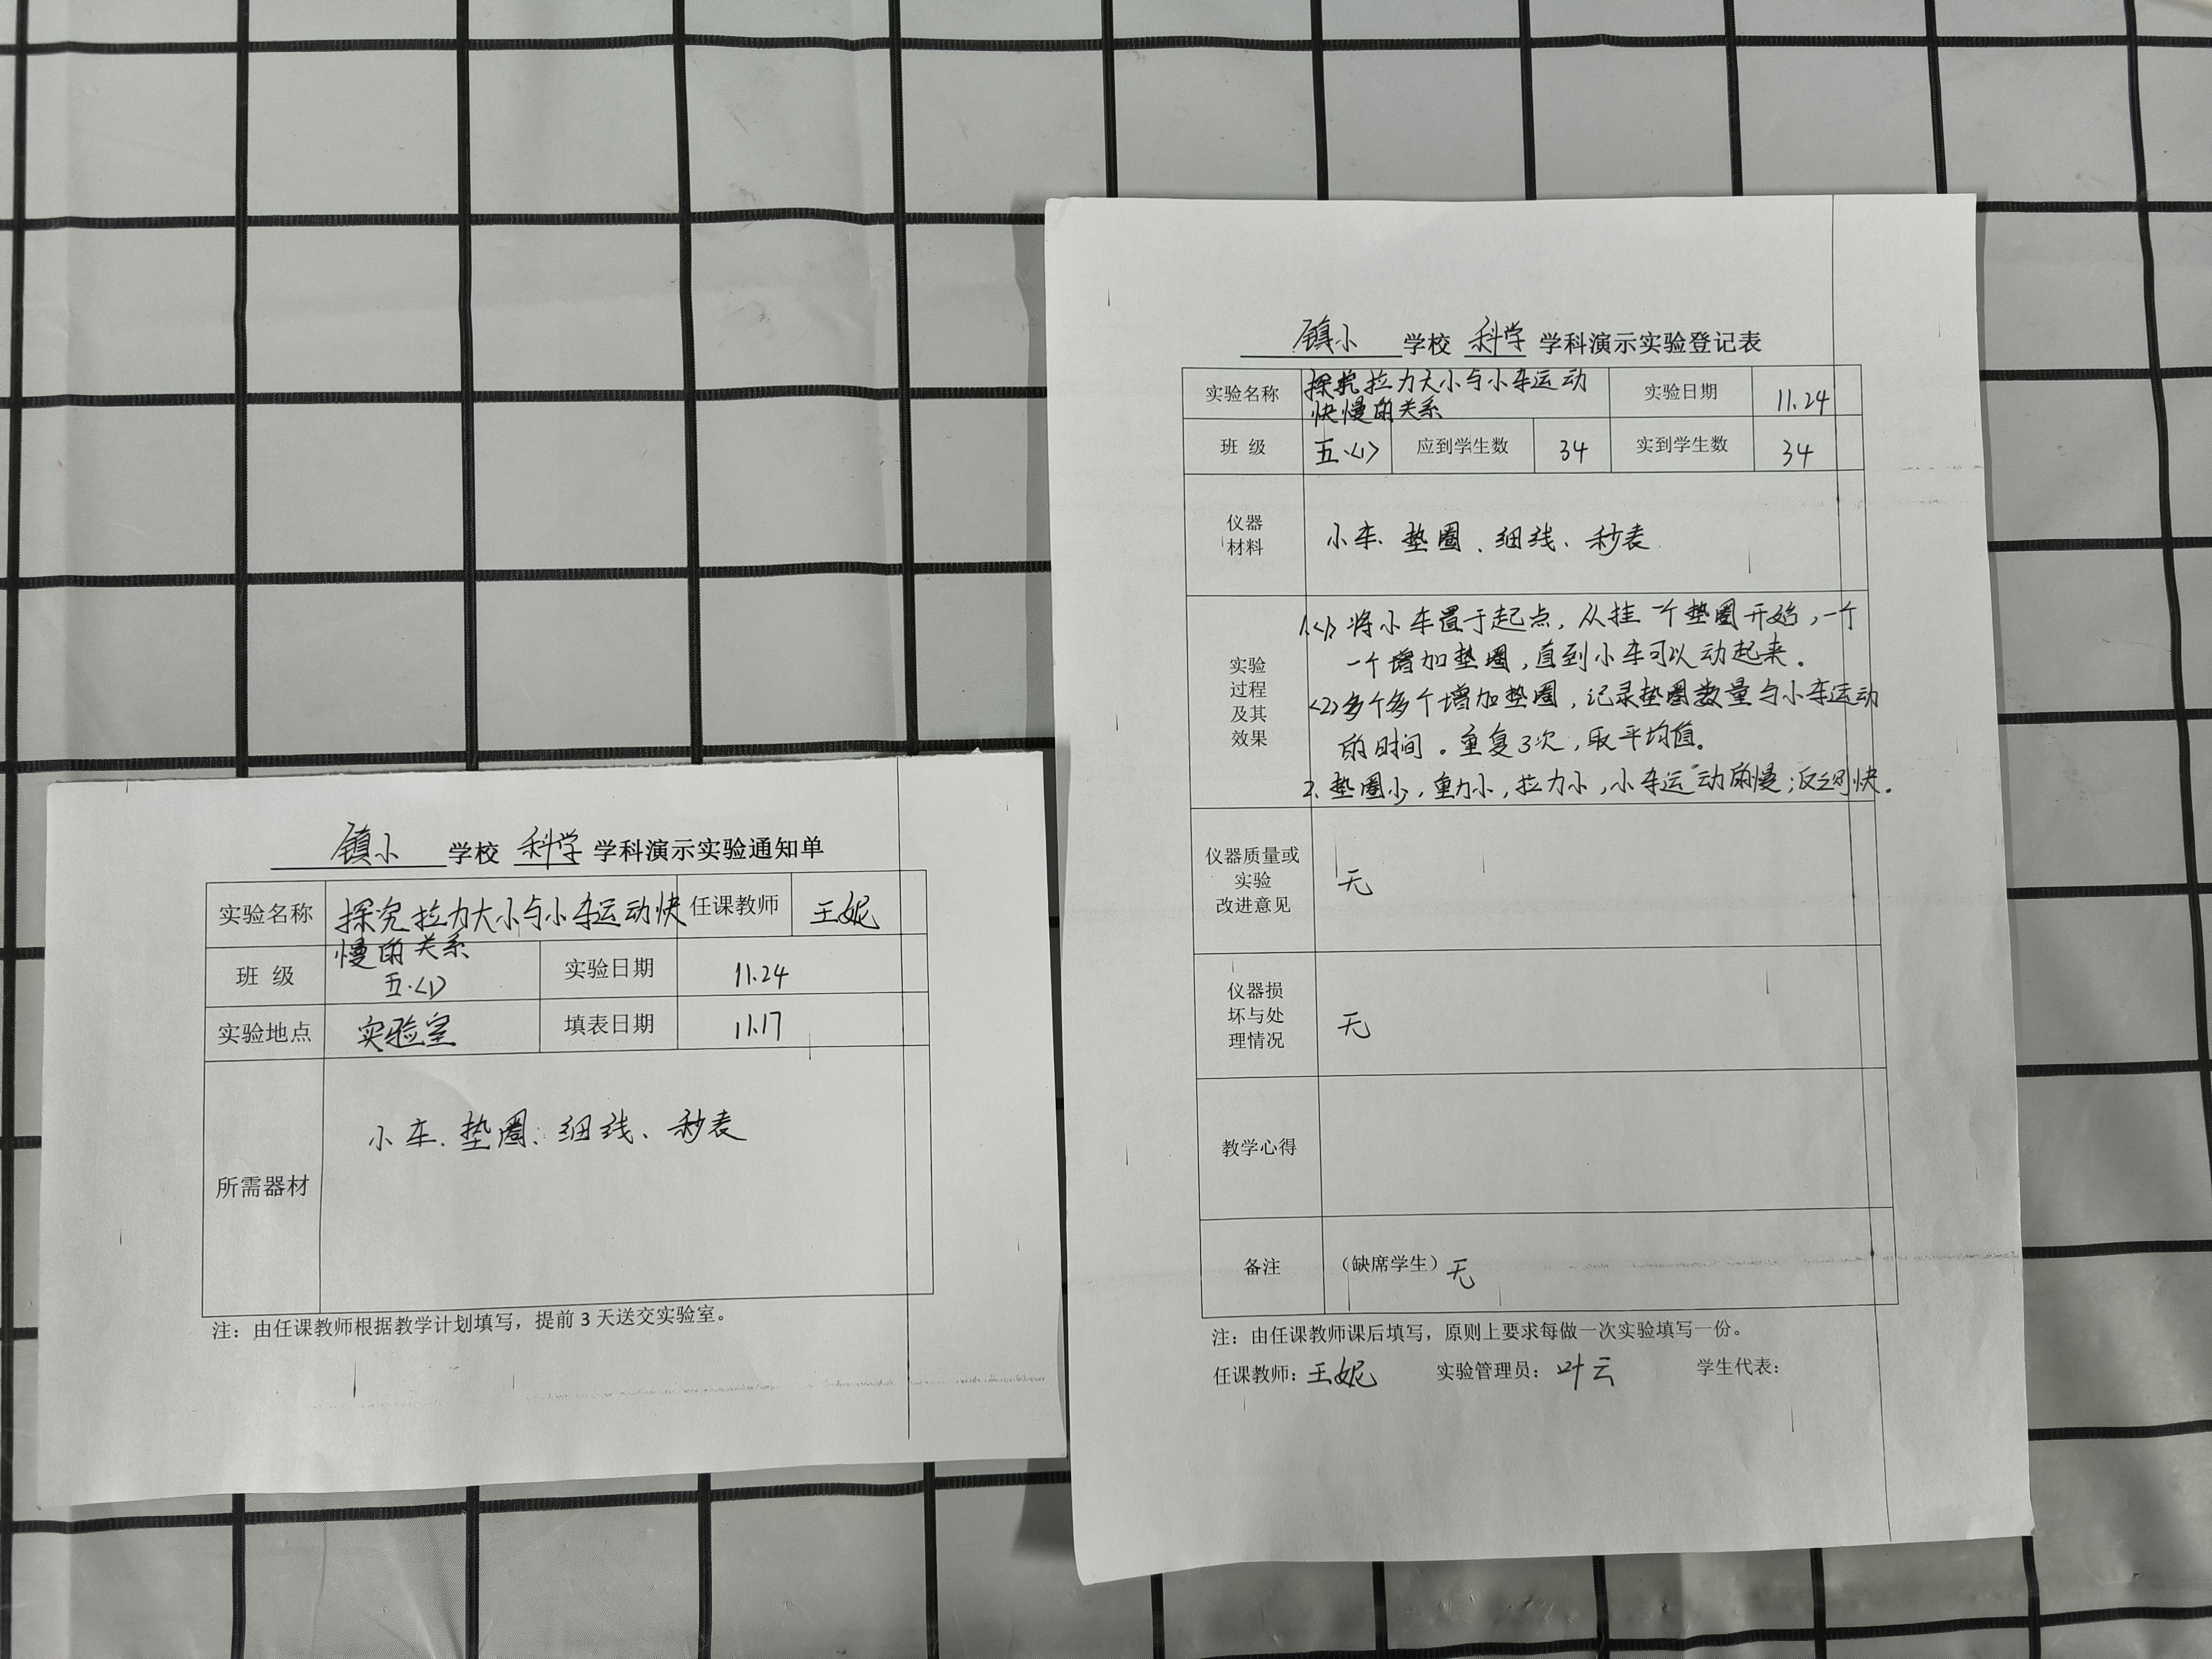 镇小 学校 科学 学科演示实验通知单
实验名称 探究拉力大小与小车运动快 任课教师 王妮
慢的关系
班 级 五.<1> 实验日期 11.24
实验地点 实验室 填表日期 11.17
所需器材 小车、垫圈、细线、秒表
注：由任课教师根据教学计划填写，提前 3 天送交实验室。
镇小 学校 科学 学科演示实验登记表
实验名称 探究拉力大小与小车运动 实验日期 11.24
快慢的关系
班 级 五.<1> 应到学生数 34 实到学生数 34
仪器
材料
小车、垫圈、细线、秒表
实验
过程
及其
效果
1.<1> 将小车置于起点，从挂一个垫圈开始，一个
一个增加垫圈，直到小车可以动起来。
<2>多个多个增加垫圈，记录垫圈数量与小车运动
的时间。重复3次，取平均值。
2、垫圈少，重力小，拉力小，小车运动的慢；反之则快。
仪器质量或
实验
改进意见
无
仪器损
坏与处
理情况
无
教学心得
备注 （缺席学生）无
注：由任课教师课后填写，原则上要求每做一次实验填写一份。
任课教师：王妮 实验管理员：叶云 学生代表：